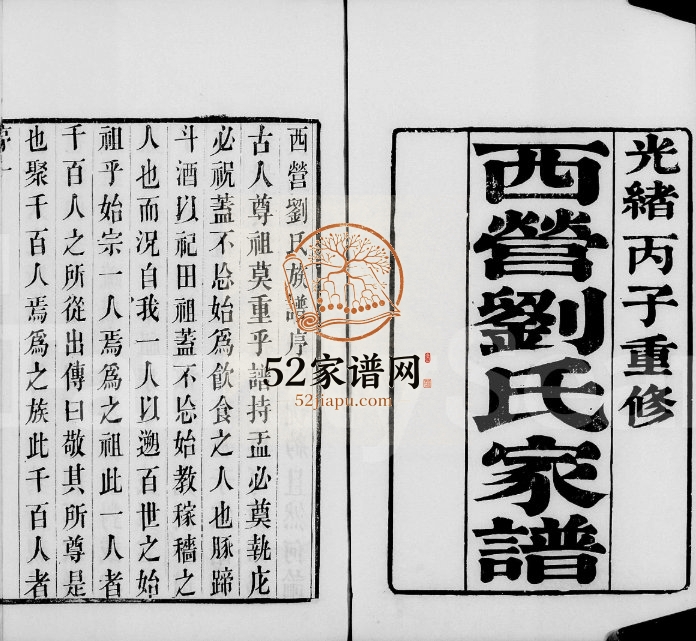 光緒丙子重修
西營劉氏家譜
西營劉氏族譜序
古人尊祖莫重乎譜持盂必奠執庀
必祝蓋不忘始為飲食之人也豚蹄
斗酒以祀田祖蓋不忘始教稼穡之
人也而況自我一人以遡百世之始
祖乎始宗一人焉為之祖此一人者
千百人之所從出傳曰敬其所尊是
也聚千百人焉為之族此千百人者
52家谱网
52jiapu.com